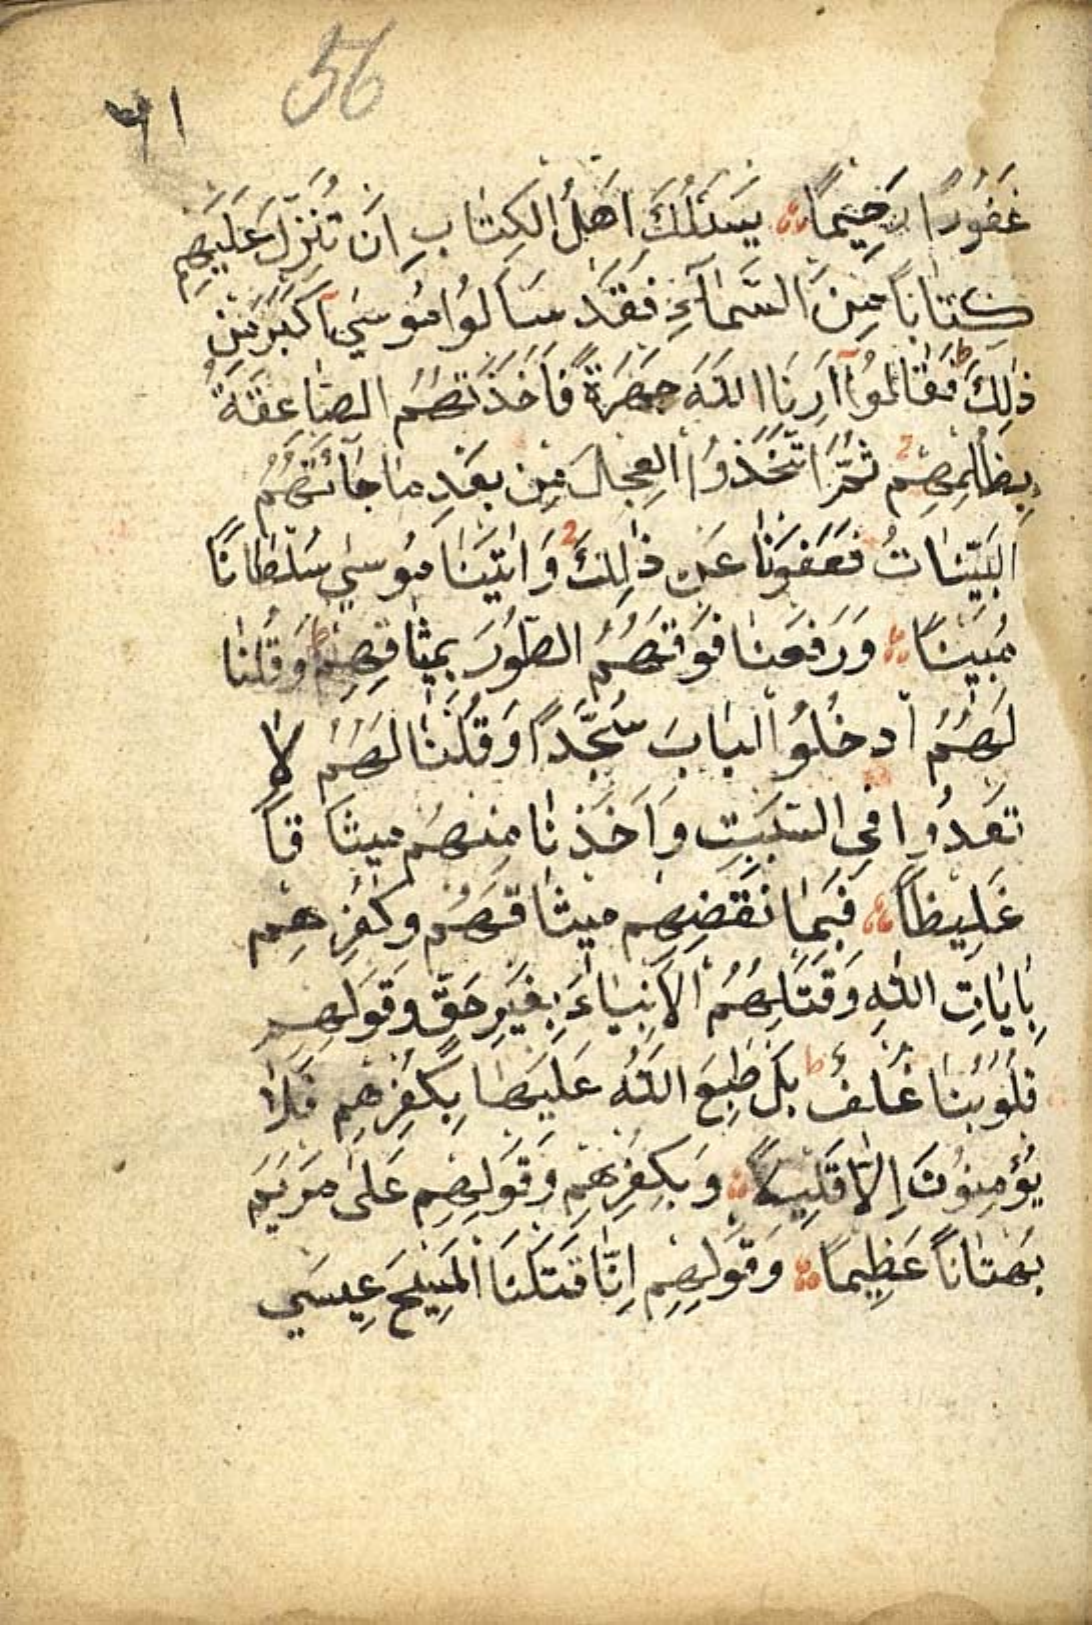 56
٦١
غَفُورًا رَحِيمًا يَسْئَلُكَ اَهْلُ الْكِتَابِ اَنْ تُنَزِّلَ عَلَيْهِمْ
كِتَابًا مِنَ السَّمَآءِ فَقَدْ سَاَلُوا مُوسَى اَكْبَرَ مِنْ
ذٰلِكَ ط فَقَالُوآ اَرِنَا اللّٰهَ جَهْرَةً فَاَخَذَتْهُمُ الصَّاعِقَةُ
بِظُلْمِهِمْ ثُمَّ اتَّخَذُوا الْعِجْلَ مِنْ بَعْدِ مَا جَآئَتْهُمُ
الْبَيِّنَاتُ فَعَفَوْنَا عَنْ ذٰلِكَ وَاٰتَيْنَا مُوسٰي سُلْطَانًا
مُبِينًا وَرَفَعْنَا فَوْقَهُمُ الطُّورَ بِمِيثَاقِهِمْ ط وَقُلْنَا
لَهُمُ ادْخُلُوا الْبَابَ سُجَّدًا وَقُلْنَا لَهُمْ لَا
تَعْدُوا فِي السَّبْتِ وَاَخَذْنَا مِنْهُمْ مِيثَاقًا
غَلِيظًا فَبِمَا نَقْضِهِمْ مِيثَاقَهُمْ وَكُفْرِهِمْ
بِاٰيَاتِ اللّٰهِ وَقَتْلِهُمُ الْاَنْبِيَاءَ بِغَيْرِ حَقٍّ وَقَوْلِهِمْ
قُلُوبُنَا غُلْفٌ ط بَلْ طَبَعَ اللّٰهُ عَلَيْهَا بِكُفْرِهِمْ فَلَا
يُؤْمِنُونَ اِلَّا قَلِيلًا وَبِكُفْرِهِمْ وَقَوْلِهِمْ عَلٰى مَرْيَمَ
بُهْتَانًا عَظِيمًا وَقَوْلِهِمْ اِنَّا قَتَلْنَا الْمَسِيحَ عِيسَي